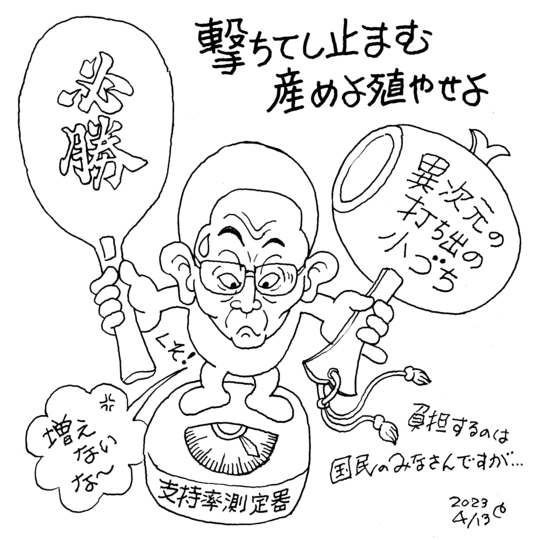 撃ちてし止まむ
産めよ殖やせよ
必勝
異次元の
打ち出の
小づち
くそ!
増え
ない
な〜
支持率測定器
負担するのは
国民のみなさんですが…
2023
4/13